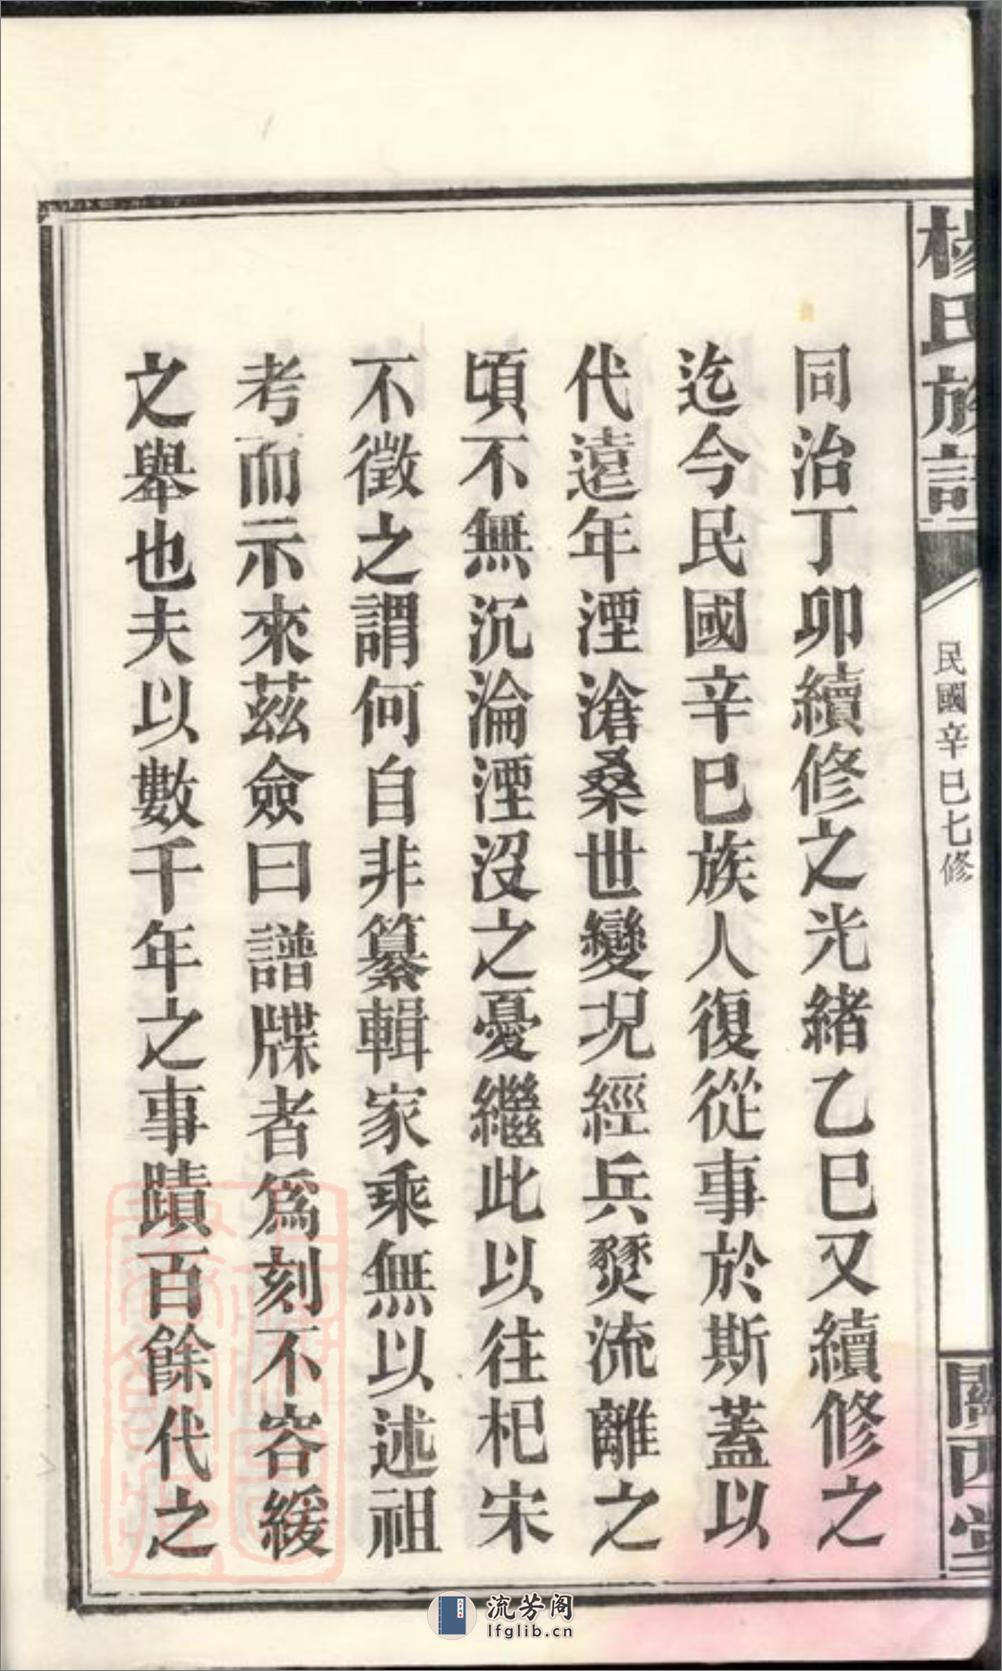 楊氏族譜
民國辛巳七修
關西堂
同治丁卯續修之光緒乙巳又續修之
迄今民國辛巳族人復從事於斯蓋以
代遠年湮滄桑世變況經兵燹流離之
頃不無沉淪湮沒之憂繼此以往杞宋
不徵之謂何自非纂輯家乘無以述祖
考而示來茲僉曰譜牒者為刻不容緩
之舉也夫以數千年之事蹟百餘代之
流芳阁
lfglib.cn